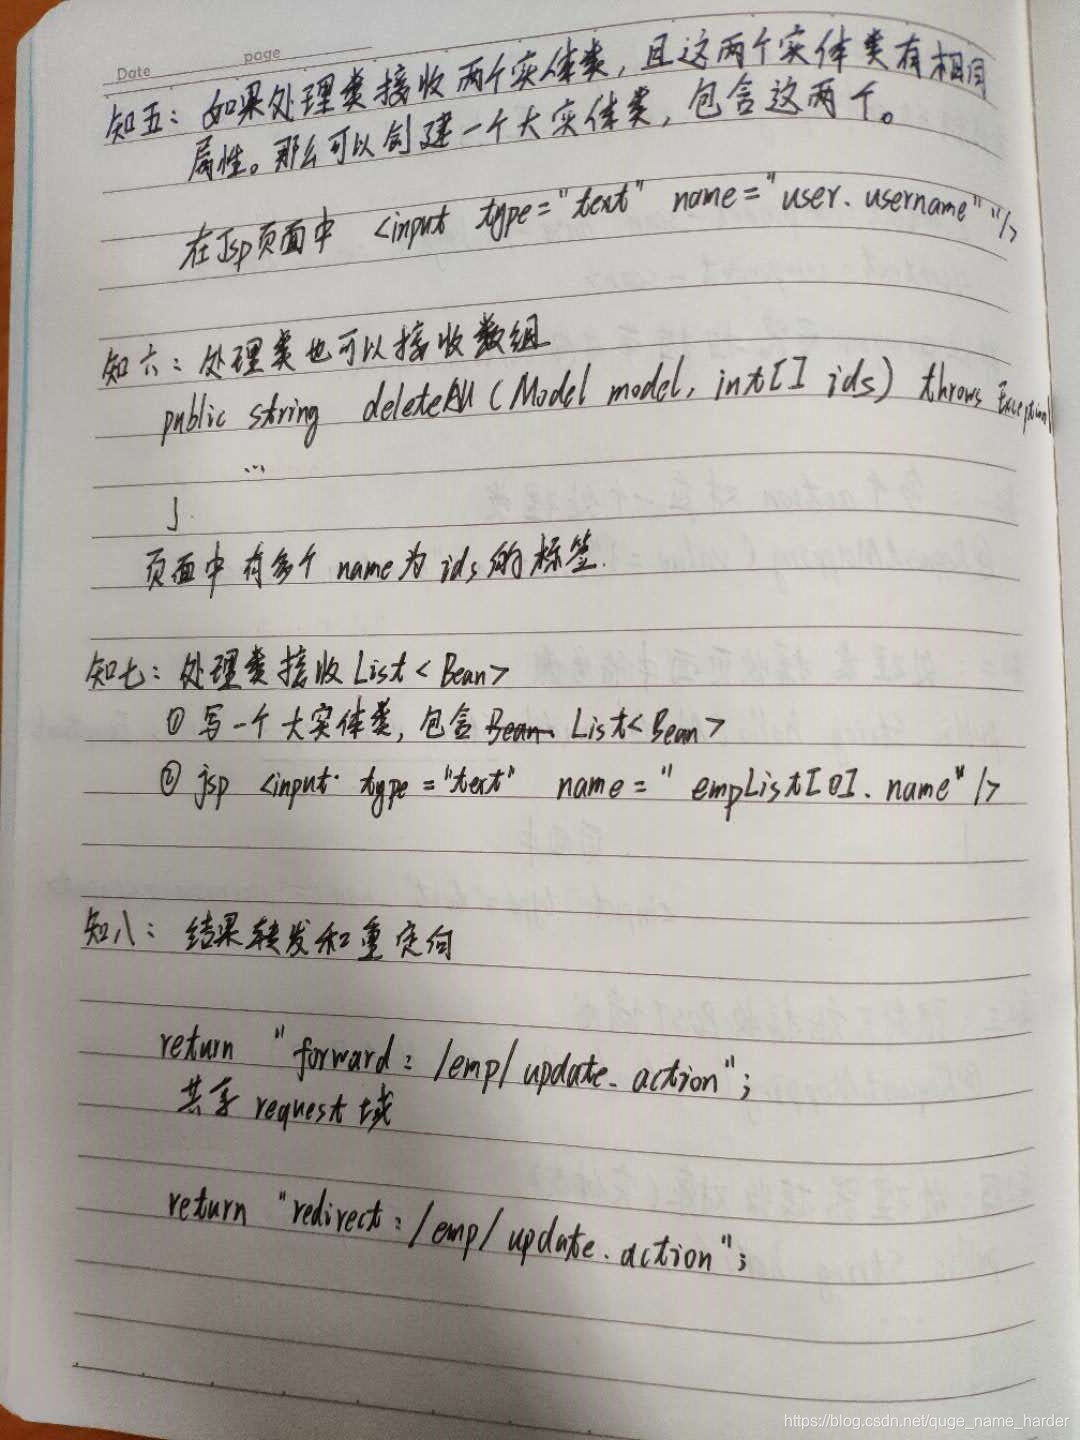 Date
page
知五：如果处理类接收两个实体类，且这两个实体类有相同
属性。那么可以创建一个大实体类，包含这两个。
在Jsp页面中 <input type="text" name="user.username""/>
知六：处理类也可以接收数组
public string deleteAll(Model model, int[] ids) throws Exception{
...
}
页面中有多个name为ids的标签.
知七：处理类接收List<Bean>
① 写一个大实体类，包含Bean、List<Bean>
② jsp <input type="text" name=" empList[0].name"/>
知八：结果转发和重定向
return "forward:/emp/update.action";
共享request域
return "redirect:/emp/update.action";
https://blog.csdn.net/quge_name_harder